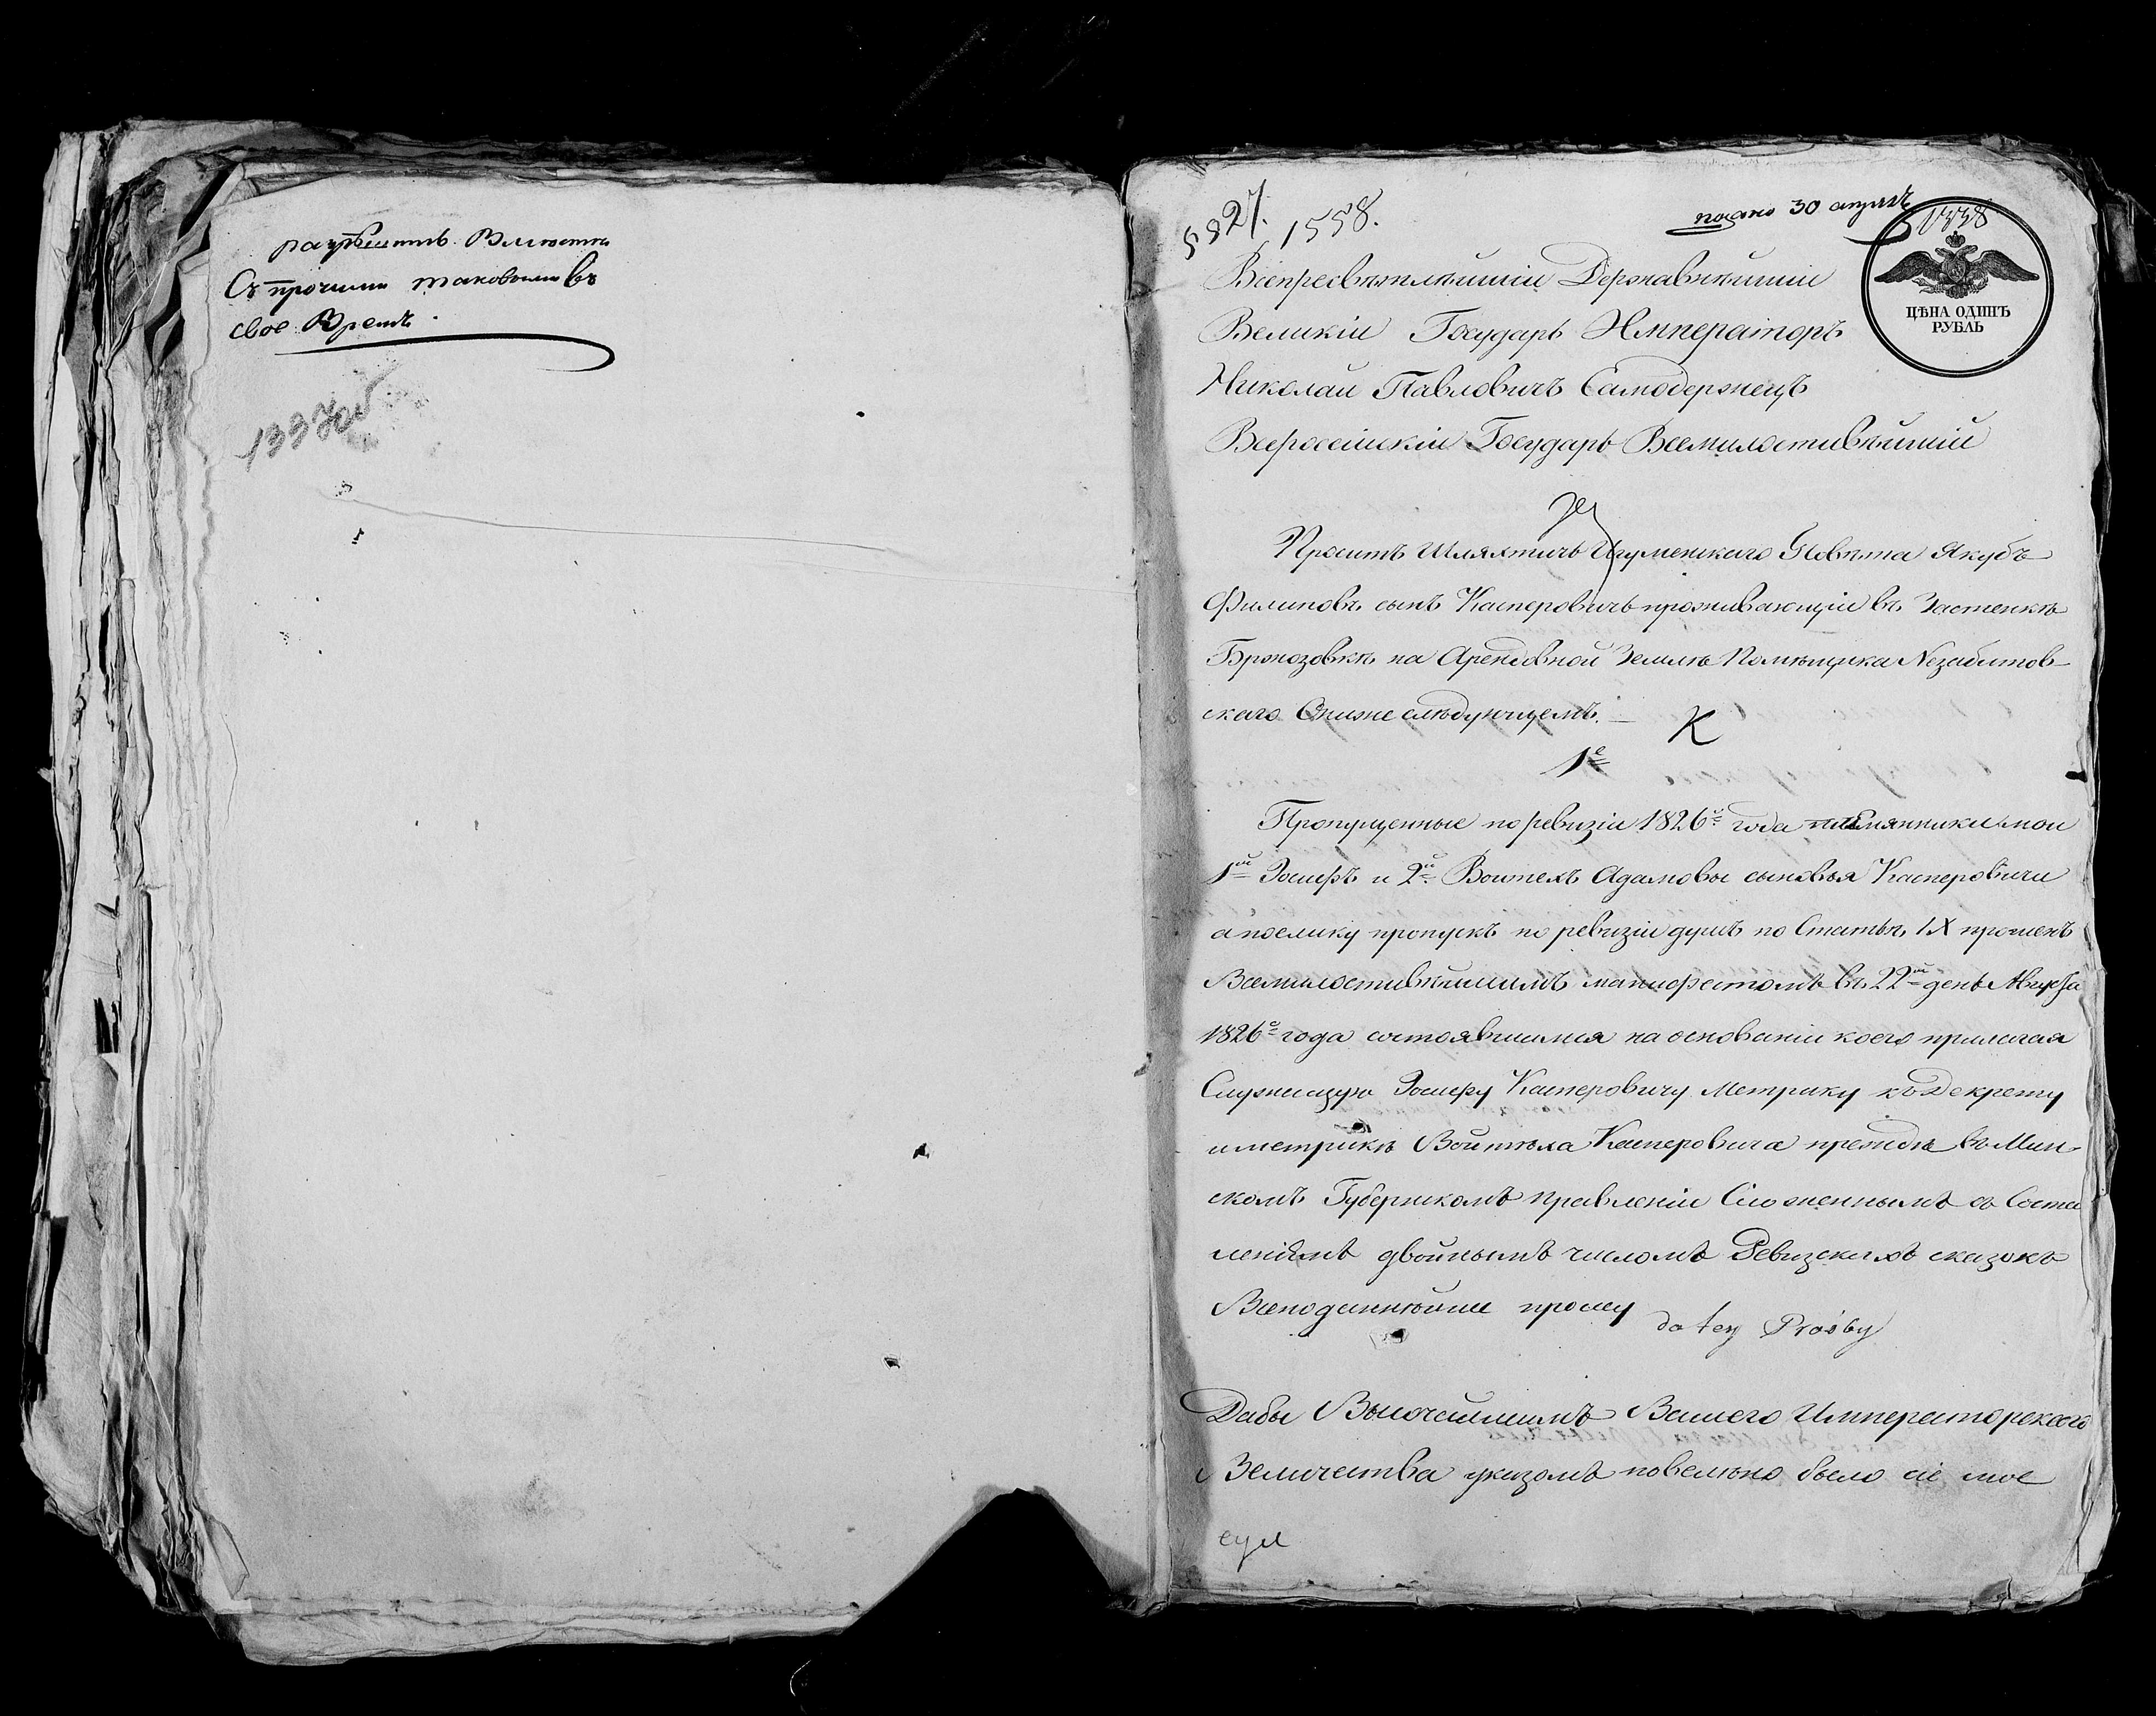 разрешить Вместе
Съ прочими таковыми въ
свое Время
5827.
1558.
подано 30 апреля
1338
ЦѢНА ОДИНЪ
РУБЛЬ
Всепресвѣтлѣйшій Державнѣйшій
Великій Государь Императоръ
Николай Павловичъ Самодержецъ
Всероссійскій Государь Всемилостивѣйшій
Проситъ Шляхтичъ Игуменскаго Повѣта Якубъ
Филиповъ сынъ Касперовичъ проживающій въ Застенкѣ
Бржозовкѣ на Арендовной Землѣ Помѣщика Nезабитов-
скаго Oниже слѣдующемъ. —
К
1е
Пропущенные по ревизіи 1826го года племянники мои
1й Іосифъ и 2й Войтехъ Адамовы сыновья Касперовичи
а поелику пропускъ по ревизіи душъ по Статьѣ IX прощенъ
Всемилостивѣйшимъ манифестомъ въ 22й день Августа
1826го года состоявшимся на основаніи коего прилагая
Служащую Іосифу Касперовичу Метрику къ Декрету
и метрикѣ Войтѣха Касперовича прежде въ Мин-
скомъ Губернскомъ правленіи Сложеннымъ съ
двойнымъ числомъ Ревизскихъ сказокъ
Всеподаннѣйше прошу
do tey Prośby
Дабы Высочайшимъ Вашего Императорскаго
Величества указомъ повелѣно было сіе мое